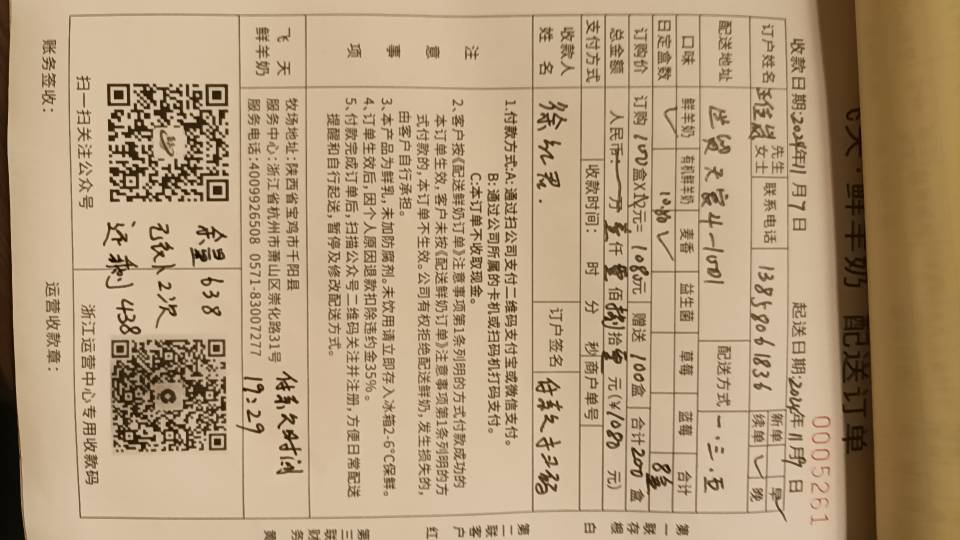 飞天·鲜羊奶 配送订单
0005261
收款日期:2024年11月7日 起送日期:2024年11月9日
订户姓名 先生 女士 联系电话 13858061836 新单 续单 ✓ 早 ✓ 晚
配送地址 配送方式 一.三.五
口味 鲜羊奶 有机鲜羊奶 麦香 益生菌 草莓 蓝莓 合计
日定盒数
订购价 订购100盒X 元=1080元 赠送100盒 合计200盒
总金额 人民币: 万壹仟零佰捌拾零元(¥1080 元)
支付方式 收款时间: 时 分 秒 商户单号
收款人姓名 订户签名
注意事项
1.付款方式:A:通过扫公司支付二维码支付宝或微信支付。
B:通过公司所属的卡机或扫码机打码支付。
C:本订单不收取现金。
2、客户按《配送鲜奶订单》注意事项第1条列明的方式付款成功的
本订单生效,客户未按《配送鲜奶订单》注意事项第1条列明的方
式付款的,本订单不生效。公司有权拒绝配送鲜奶,发生损失的,
由客户自行承担。
3、本产品为鲜乳,未加防腐剂。未饮用请立即存入冰箱2-6°C保鲜。
4、订单生效后,因个人原因退款扣除违约金35%。
5、付款完成订单后,扫描公众号二维码关注并注册,方便日常配送
提醒和自行起送,暂停及修改配送方式。
飞天鲜羊奶
牧场地址:陕西省宝鸡市千阳县
服务中心:浙江省杭州市萧山区崇化路31号
服务电话:4009926508 0571-83007277
19:29
余量638
还剩438
扫一扫关注公众号 浙江运营中心专用收款码
账务签收: 运营收款章:
第一联 存根 白
第二联 客户 红
第三联 财务 黄